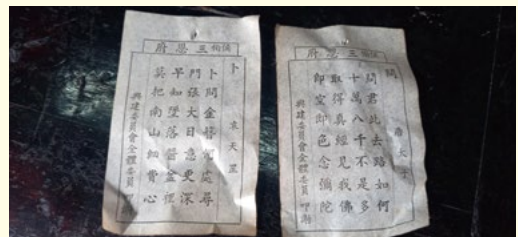 府恩三
卜
袁天罡
卜問金釵何處尋
門張大日意更深
早知墜落醫盒裡
莫把南山細費心
興建委員會全體委員 叩謝
府恩三
問
問君此去路如何
十萬八千不是多
取得真經見我佛
即空即色念彌陀
興建委員會全體委員 叩謝